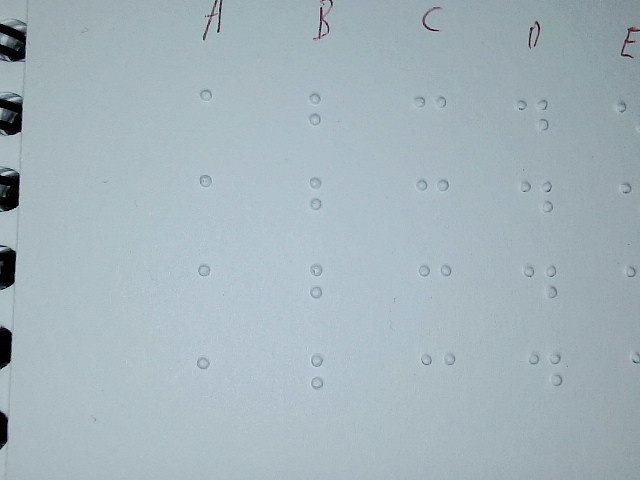 A B C D E
⠁ ⠃ ⠉ ⠙ ⠑
⠁ ⠃ ⠉ ⠙
⠁ ⠃ ⠉ ⠙
⠁ ⠃ ⠉ ⠙